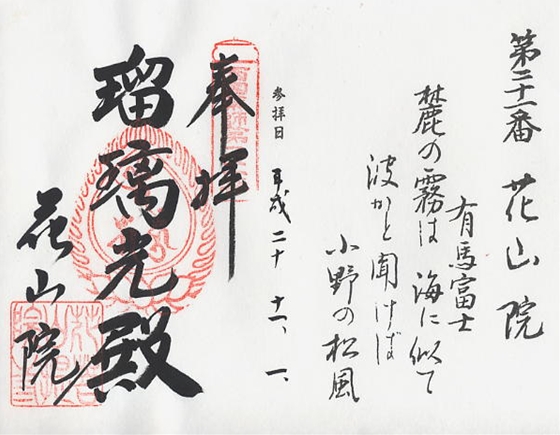 第二十一番 花山院
有馬富士
麓の霧は 海に似て
波かと聞けば
小野の松風
参拝日 平成二十 十一、一、
奉拝
瑠璃光殿
花山院